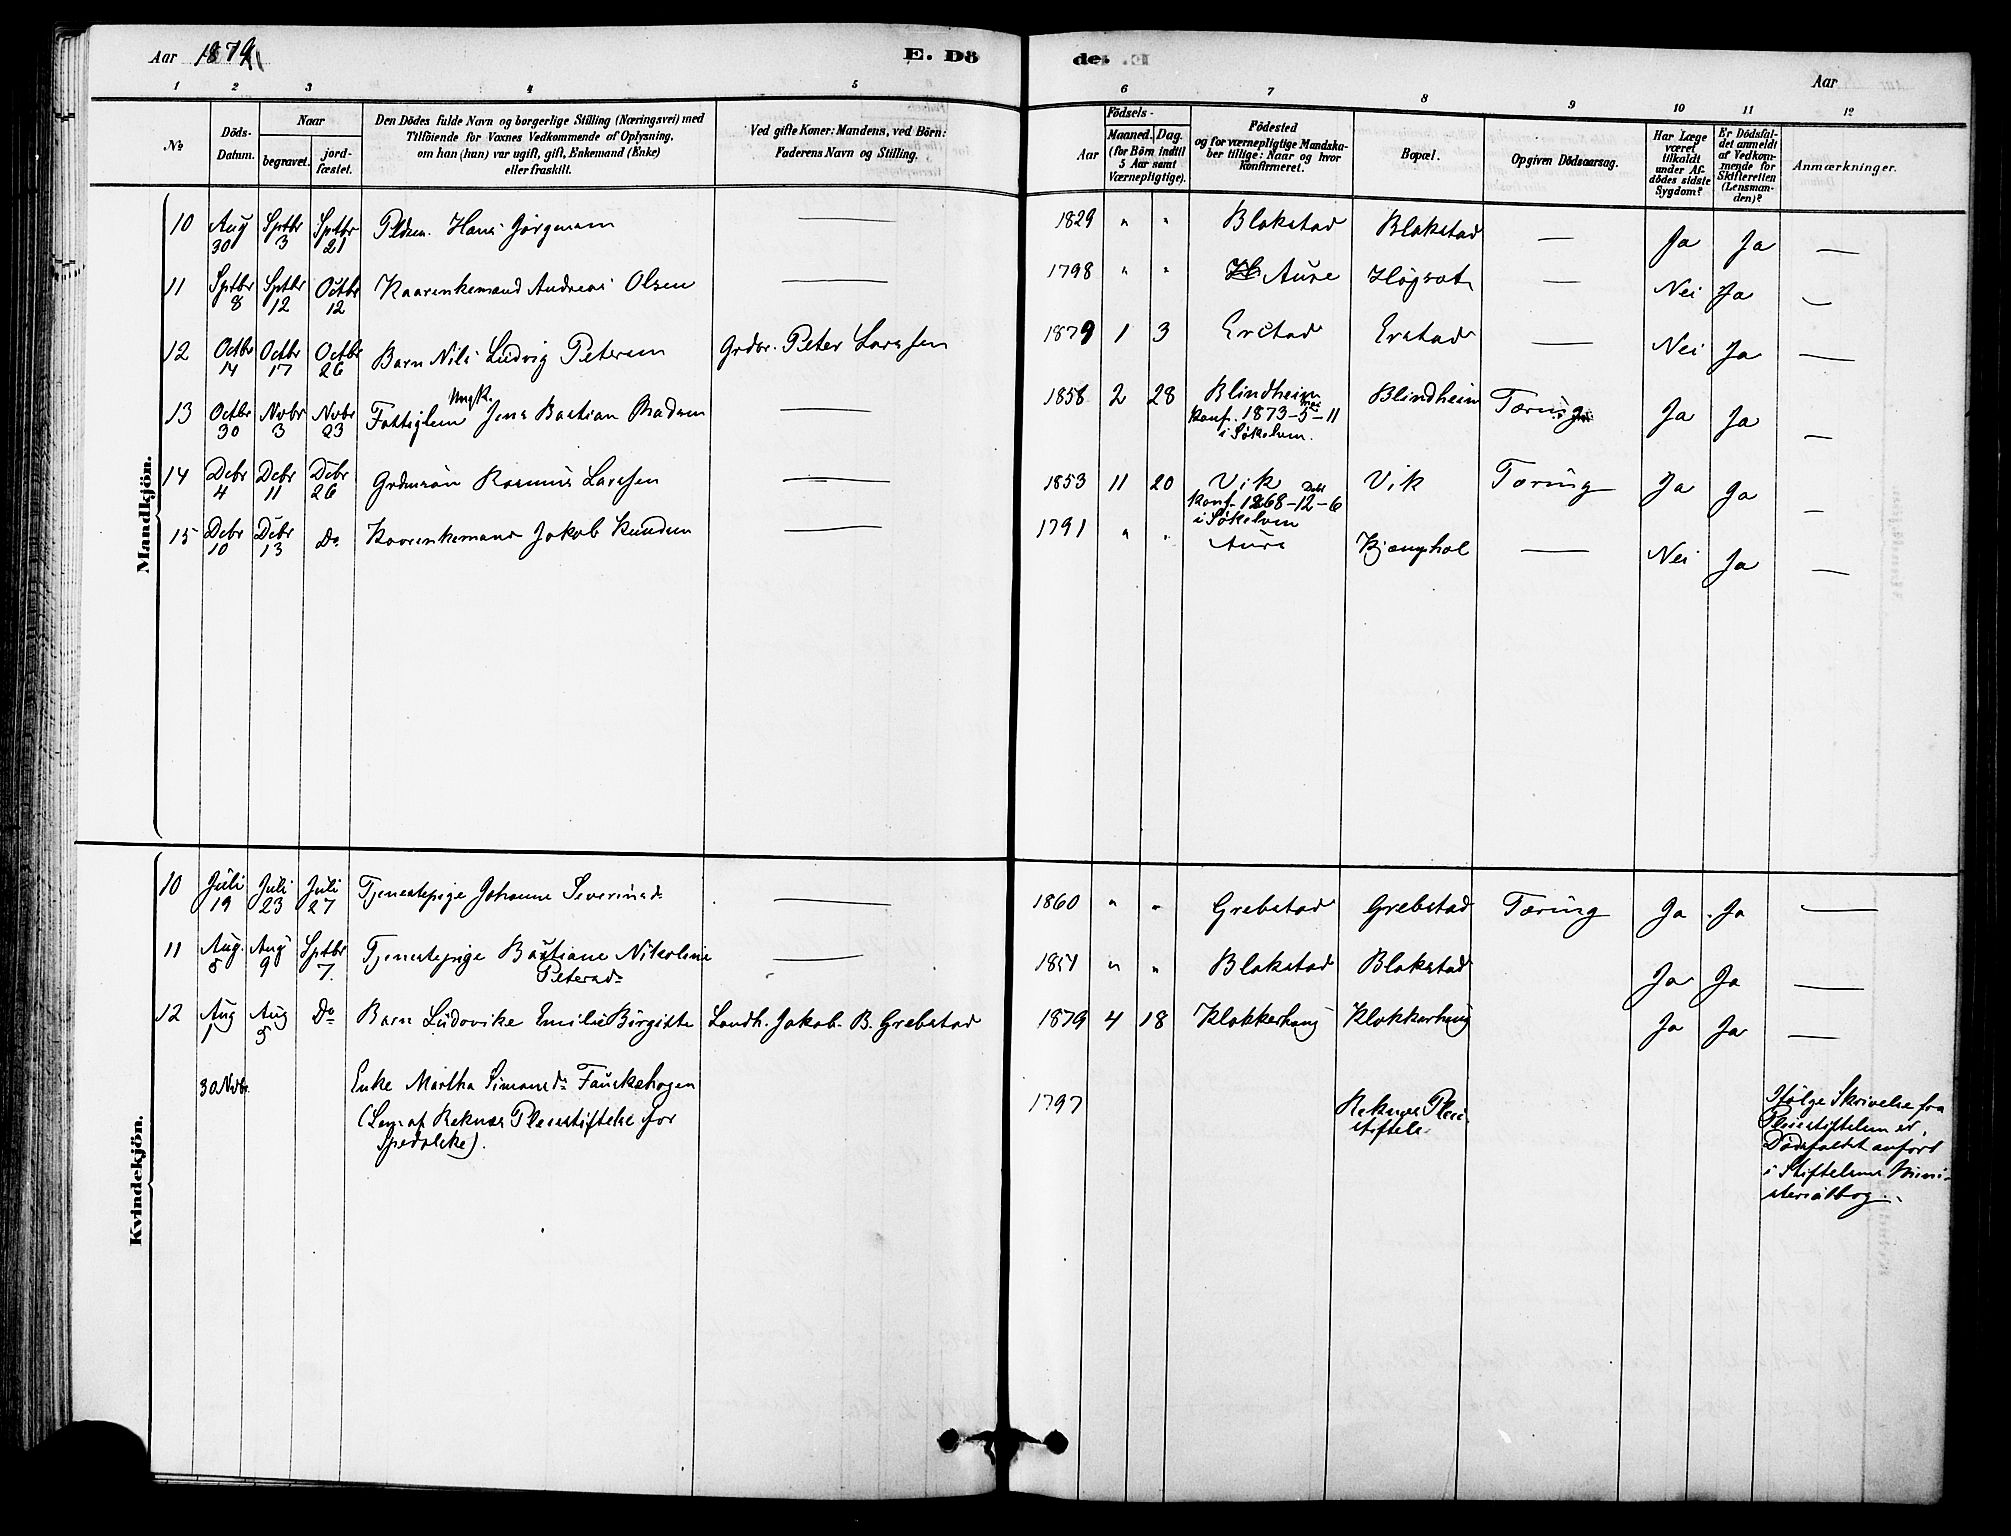 Aar 1879
E. Dö
de.
Aar
1 2 3 4 5 6 7 8 9 10 11 12
No
Döds-
Datum.
Naar
begravet.
jord-
fæstet.
Den Dödes fulde Navn og borgerlige Stilling (Næringsvei) med
Tilföiende for Voxnes Vedkommende af Oplysning,
om han (hun) var ugift, gift, Enkemand (Enke)
eller fraskilt.
Ved gifte Koner: Mandens, ved Börn:
Faderens Navn og Stilling.
Födsels-
Aar
Maaned. Dag.
(for Börn indtil
5 Aar samt
Værnepligtige).
Födested
og for værnepligtige Mandska-
ber tillige: Naar og hvor
Konfirmeret.
Bopæl.
Opgiven Dödsaarsag.
Har Læge
været
tilkaldt
under Af-
dödes sidste
Sygdom?
Er Dödsfal-
det anmeldt
af Vedkom-
mende for
Skifteretten
(Lensman-
den)?
Anmærkninger.
Mandkjön.
10 Aug 30 Sptbr 3 Sptbr 21 Pldsm. Hans Jørgensen — 1829 " " Blakstad Blakstad — Ja Ja —
11 Sptbr 8 Sptbr 12 Octbr 12 Kaarenkemand Andreas Olsen — 1798 " " Aure — Nei Ja —
12 Octbr 14 Octbr 17 Octbr 26 Barn Nils Ludvig Petersen Grdbr. Peter Larssen 1879 1 3 Erstad Erstad — Nei Ja —
13 Octbr 30 Nvbr 3 Nvbr 23 Fattiglem Ungk. Jens Bastian Madsen — 1858 2 28 Blindheim Blindheim Tæring Ja Ja —
Konf. 1873-5-11
Mai
i Søkelven.
14 Debr 4 Debr 11 Debr 26 Grdmsøn Rasmus Larssen — 1853 11 20 Vik Vik Tæring Ja Ja —
Konf. 1868-12-6
Debr
i Søkelven
15 Debr 10 Debr 13 Do Kaarenkemand Jakob Knudsen — 1791 " " Aure — Nei Ja —
Kvindekjön.
10 Juli 19 Juli 23 Juli 27 Tjenestepige Johanne Severinsdr — 1860 " " Grebstad Grebstad Tæring Ja Ja —
11 Aug. 5 Aug 9 Sptbr 7. Tjenestepige Bastiane Nikoline — 1851 " " Blakstad Blakstad Ja Ja —
Petersdr
12 Aug 1 Aug 5 Do Barn Ludovike Emilie Birgitte Landh. Jakob. B. Grebstad 1879 4 18 Klokkerhaug Klokkerhaug Ja Ja —
30 Nvbr. Enke Martha Simonsdr Fauskehagen
(Lem af Reknæs Pleiestiftelse for
Spedalske).
1797 Reknæs Pleie-
stiftelse
Ifølge Skrivelse fra
Pleiestiftelsen er
Dødsfaldet anført
i Stiftelsens Mini-
sterialbog.